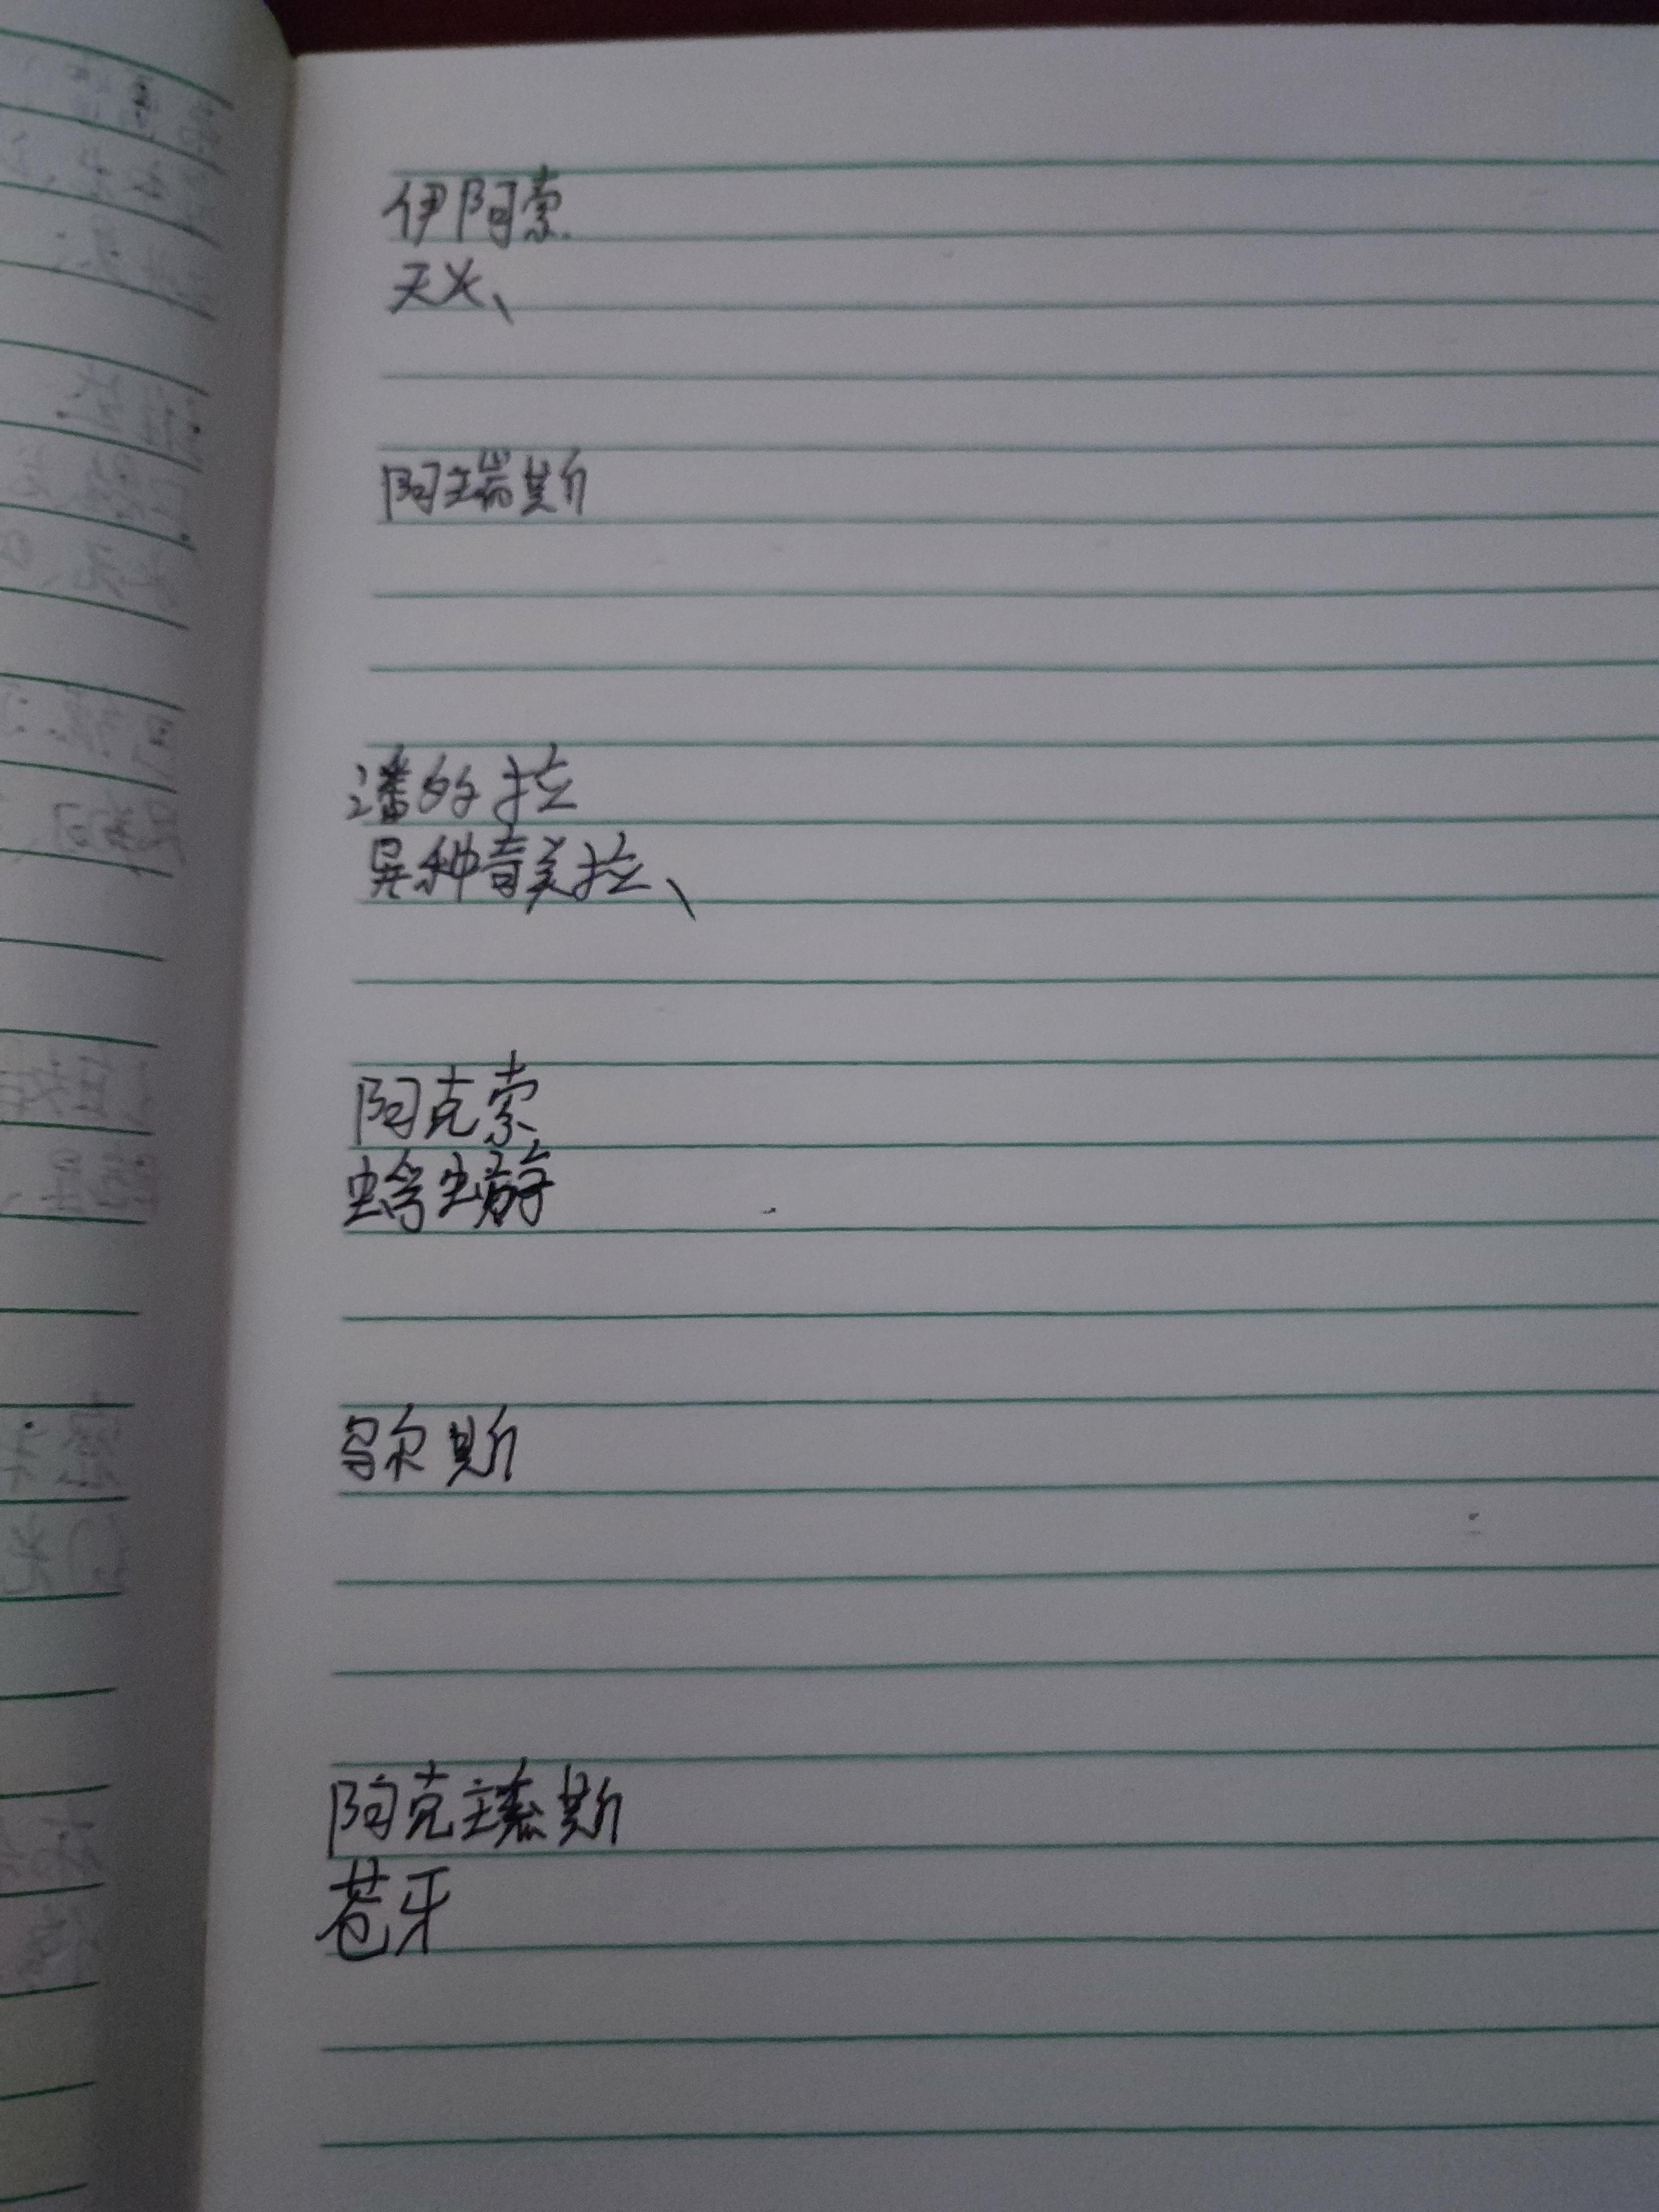 伊阿索
天火、
阿瑞斯
潘的拉
异种奇美拉、
阿克索
乌尔斯
阿克斯
苍牙